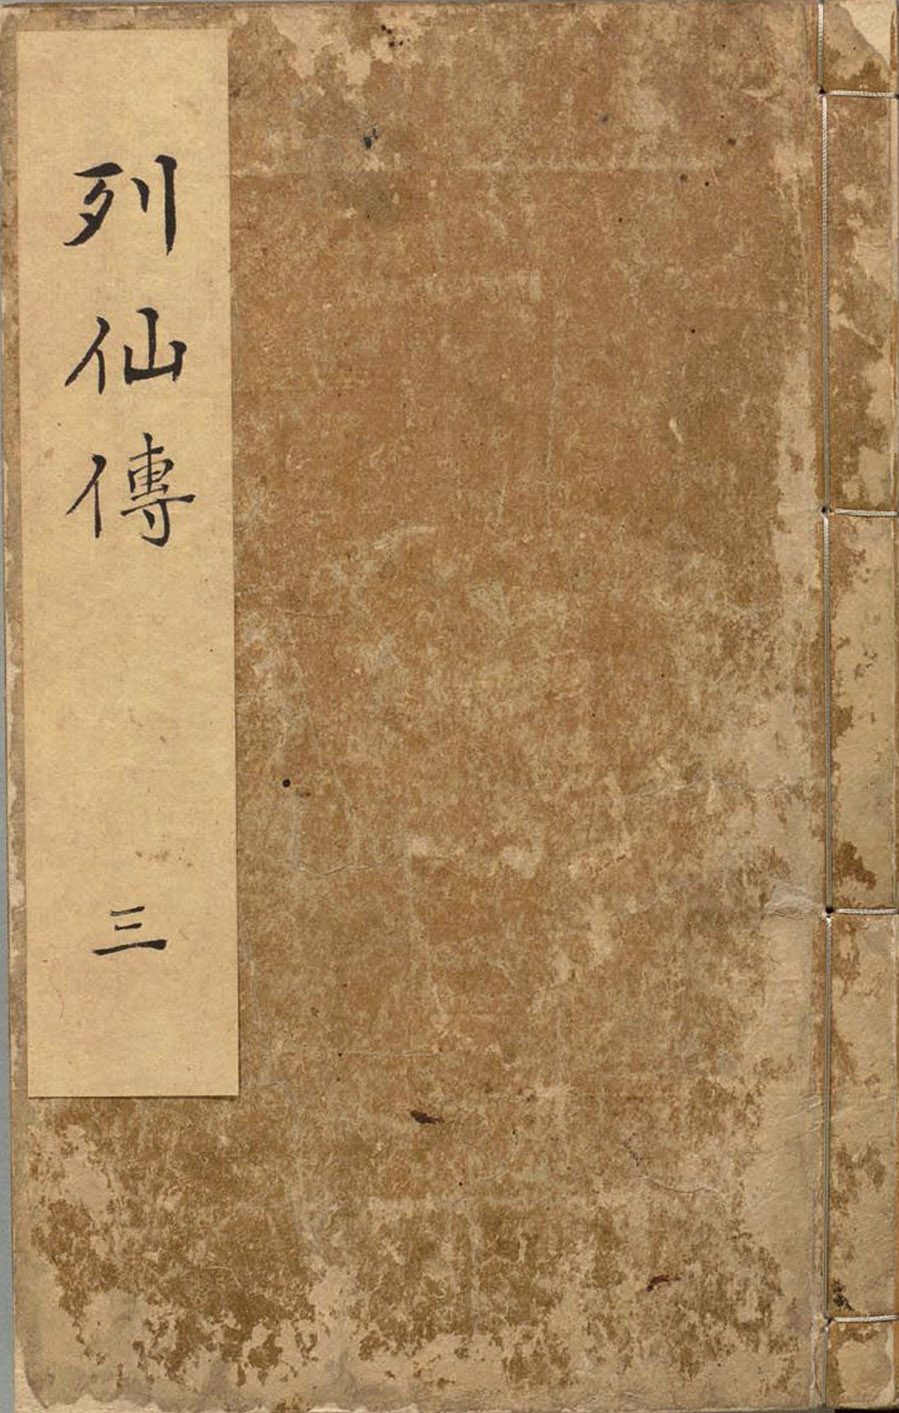 列仙傳 三